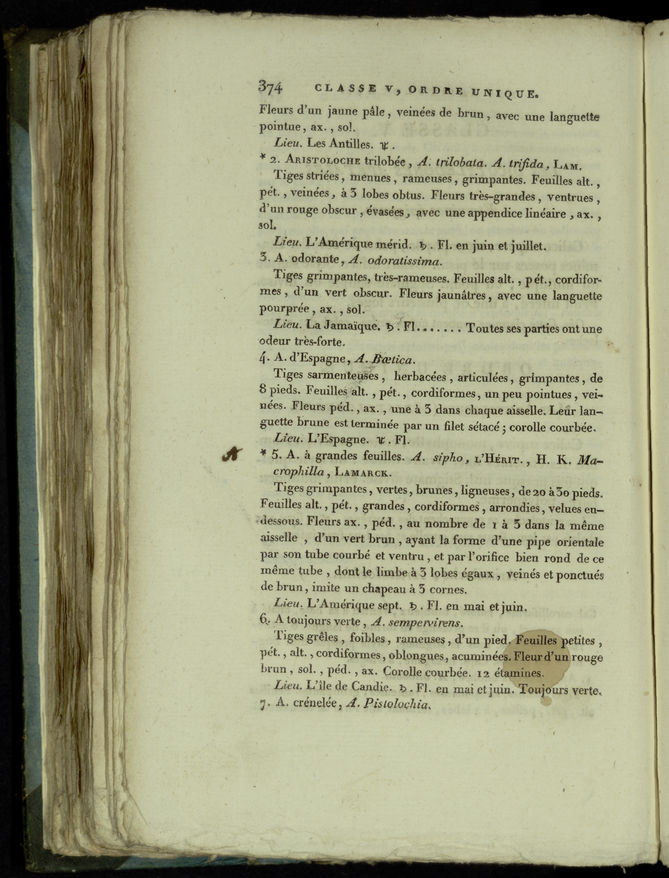 374 CLASSE V, ORDRE UNIQUE.
Fleurs d'un jaune pâle, veinées de brun, avec une languette
pointue, ax., sol.
Lieu. Les Antilles. ♃.
* 2. ARISTOLOCHE trilobée, A. trilobata. A. trifida, LAM.
Tiges striées, menues, rameuses, grimpantes. Feuilles alt.,
pét., veinées, à 3 lobes obtus. Fleurs très-grandes, ventrues,
d'un rouge obscur, évasées, avec une appendice linéaire, ax.,
sol.
Lieu. L'Amérique mérid. ♄. Fl. en juin et juillet.
3. A. odorante, A. odoratissima.
Tiges grimpantes, très-rameuses. Feuilles alt., pét., cordifor-
mes, d'un vert obscur. Fleurs jaunâtres, avec une languette
pourprée, ax., sol.
Lieu. La Jamaïque. ♄. Fl....... Toutes ses parties ont une
odeur très-forte.
4. A. d'Espagne, A. Bœtica.
Tiges sarmenteuses, herbacées, articulées, grimpantes, de
8 pieds. Feuilles alt., pét., cordiformes, un peu pointues, vei-
nées. Fleurs péd., ax., une à 3 dans chaque aisselle. Leur lan-
guette brune est terminée par un filet sétacé; corolle courbée.
Lieu. L'Espagne. ♃. Fl.
* 5. A. à grandes feuilles. A. sipho, L'HÉRIT., H. K. Ma-
crophilla, LAMARCK.
Tiges grimpantes, vertes, brunes, ligneuses, de 20 à 30 pieds.
Feuilles alt., pét., grandes, cordiformes, arrondies, velues en-
dessous. Fleurs ax., péd., au nombre de 1 à 3 dans la même
aisselle, d'un vert brun, ayant la forme d'une pipe orientale
par son tube courbé et ventru, et par l'orifice bien rond de ce
même tube, dont le limbe à 3 lobes égaux, veinés et ponctués
de brun, imite un chapeau à 3 cornes.
Lieu. L'Amérique sept. ♄. Fl. en mai et juin.
6. A toujours verte, A. sempervirens.
Tiges grêles, foibles, rameuses, d'un pied. Feuilles petites,
pét., alt., cordiformes, oblongues, acuminées. Fleur d'un rouge
brun, sol., péd., ax. Corolle courbée. 12 étamines.
Lieu. L'île de Candie. ♄. Fl. en mai et juin. Toujours verte.
7. A. crénelée, A. Pistolochia.